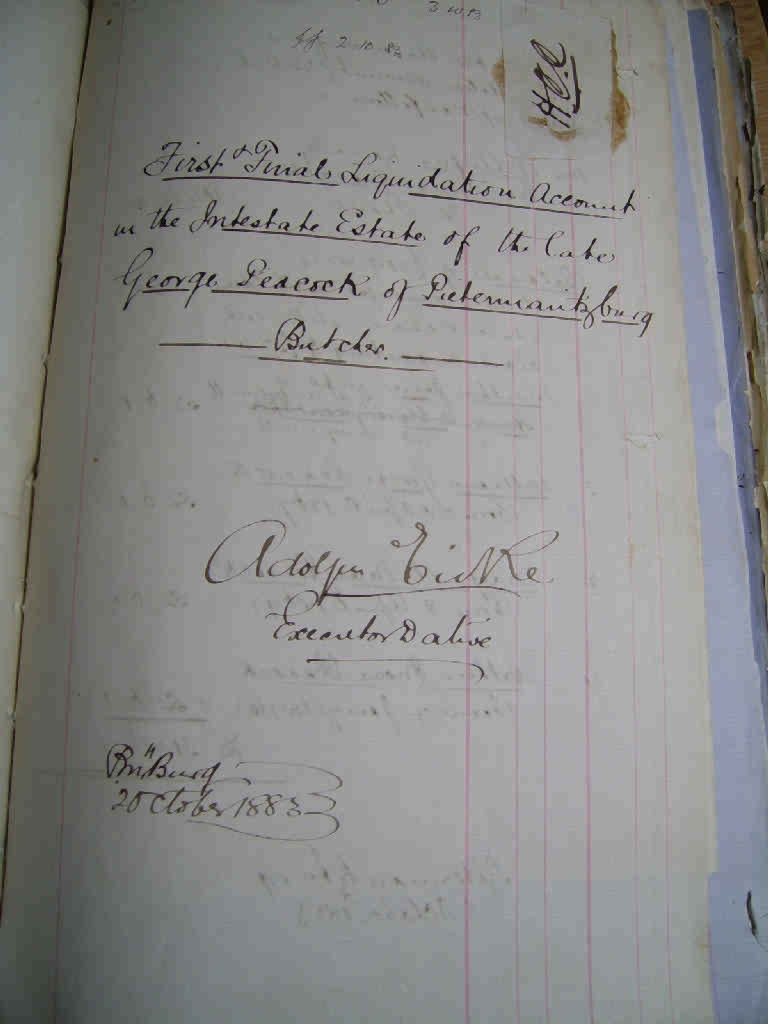 3
2.10.83
First & Final Liquidation Account
in the Intestate Estate of the late
George Peacock of Pietermaritzburg
Butcher.
Adolph
Executor Dative
PmBurg
2 October 1883